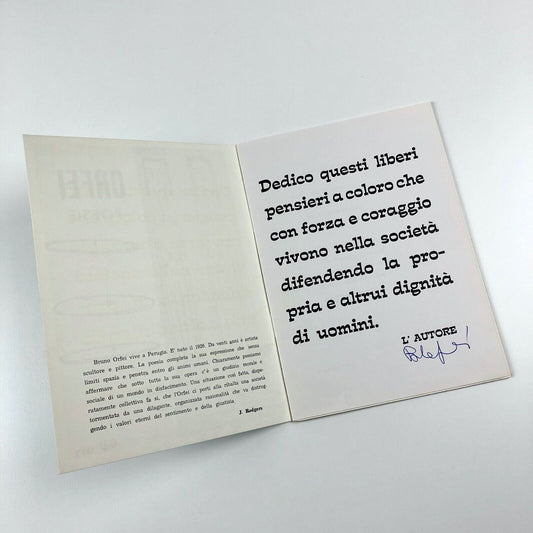 Bruno Orfei vive a Perugia. E' nato il 1928. Da venti anni è artista
scultore e pittore. La poesia completa la sua espressione che senza
limiti spazia e penetra entro gli animi umani. Chiaramente possiamo
affermare che sotto tutta la sua opera c'è un giudizio morale e
sociale di un mondo in disfacimento. Una situazione così fatta, dispe-
ratamente collettiva fa sì, che l'Orfei ci porti alla ribalta una società
tormentata da una dilagante, organizzata razionalità che va distrug-
gendo i valori eterni del sentimento e della giustizia.
J. Rodgers
Dedico questi liberi
pensieri a coloro che
con forza e coraggio
vivono nella società
difendendo la pro-
pria e altrui dignità
di uomini.
L' AUTORE